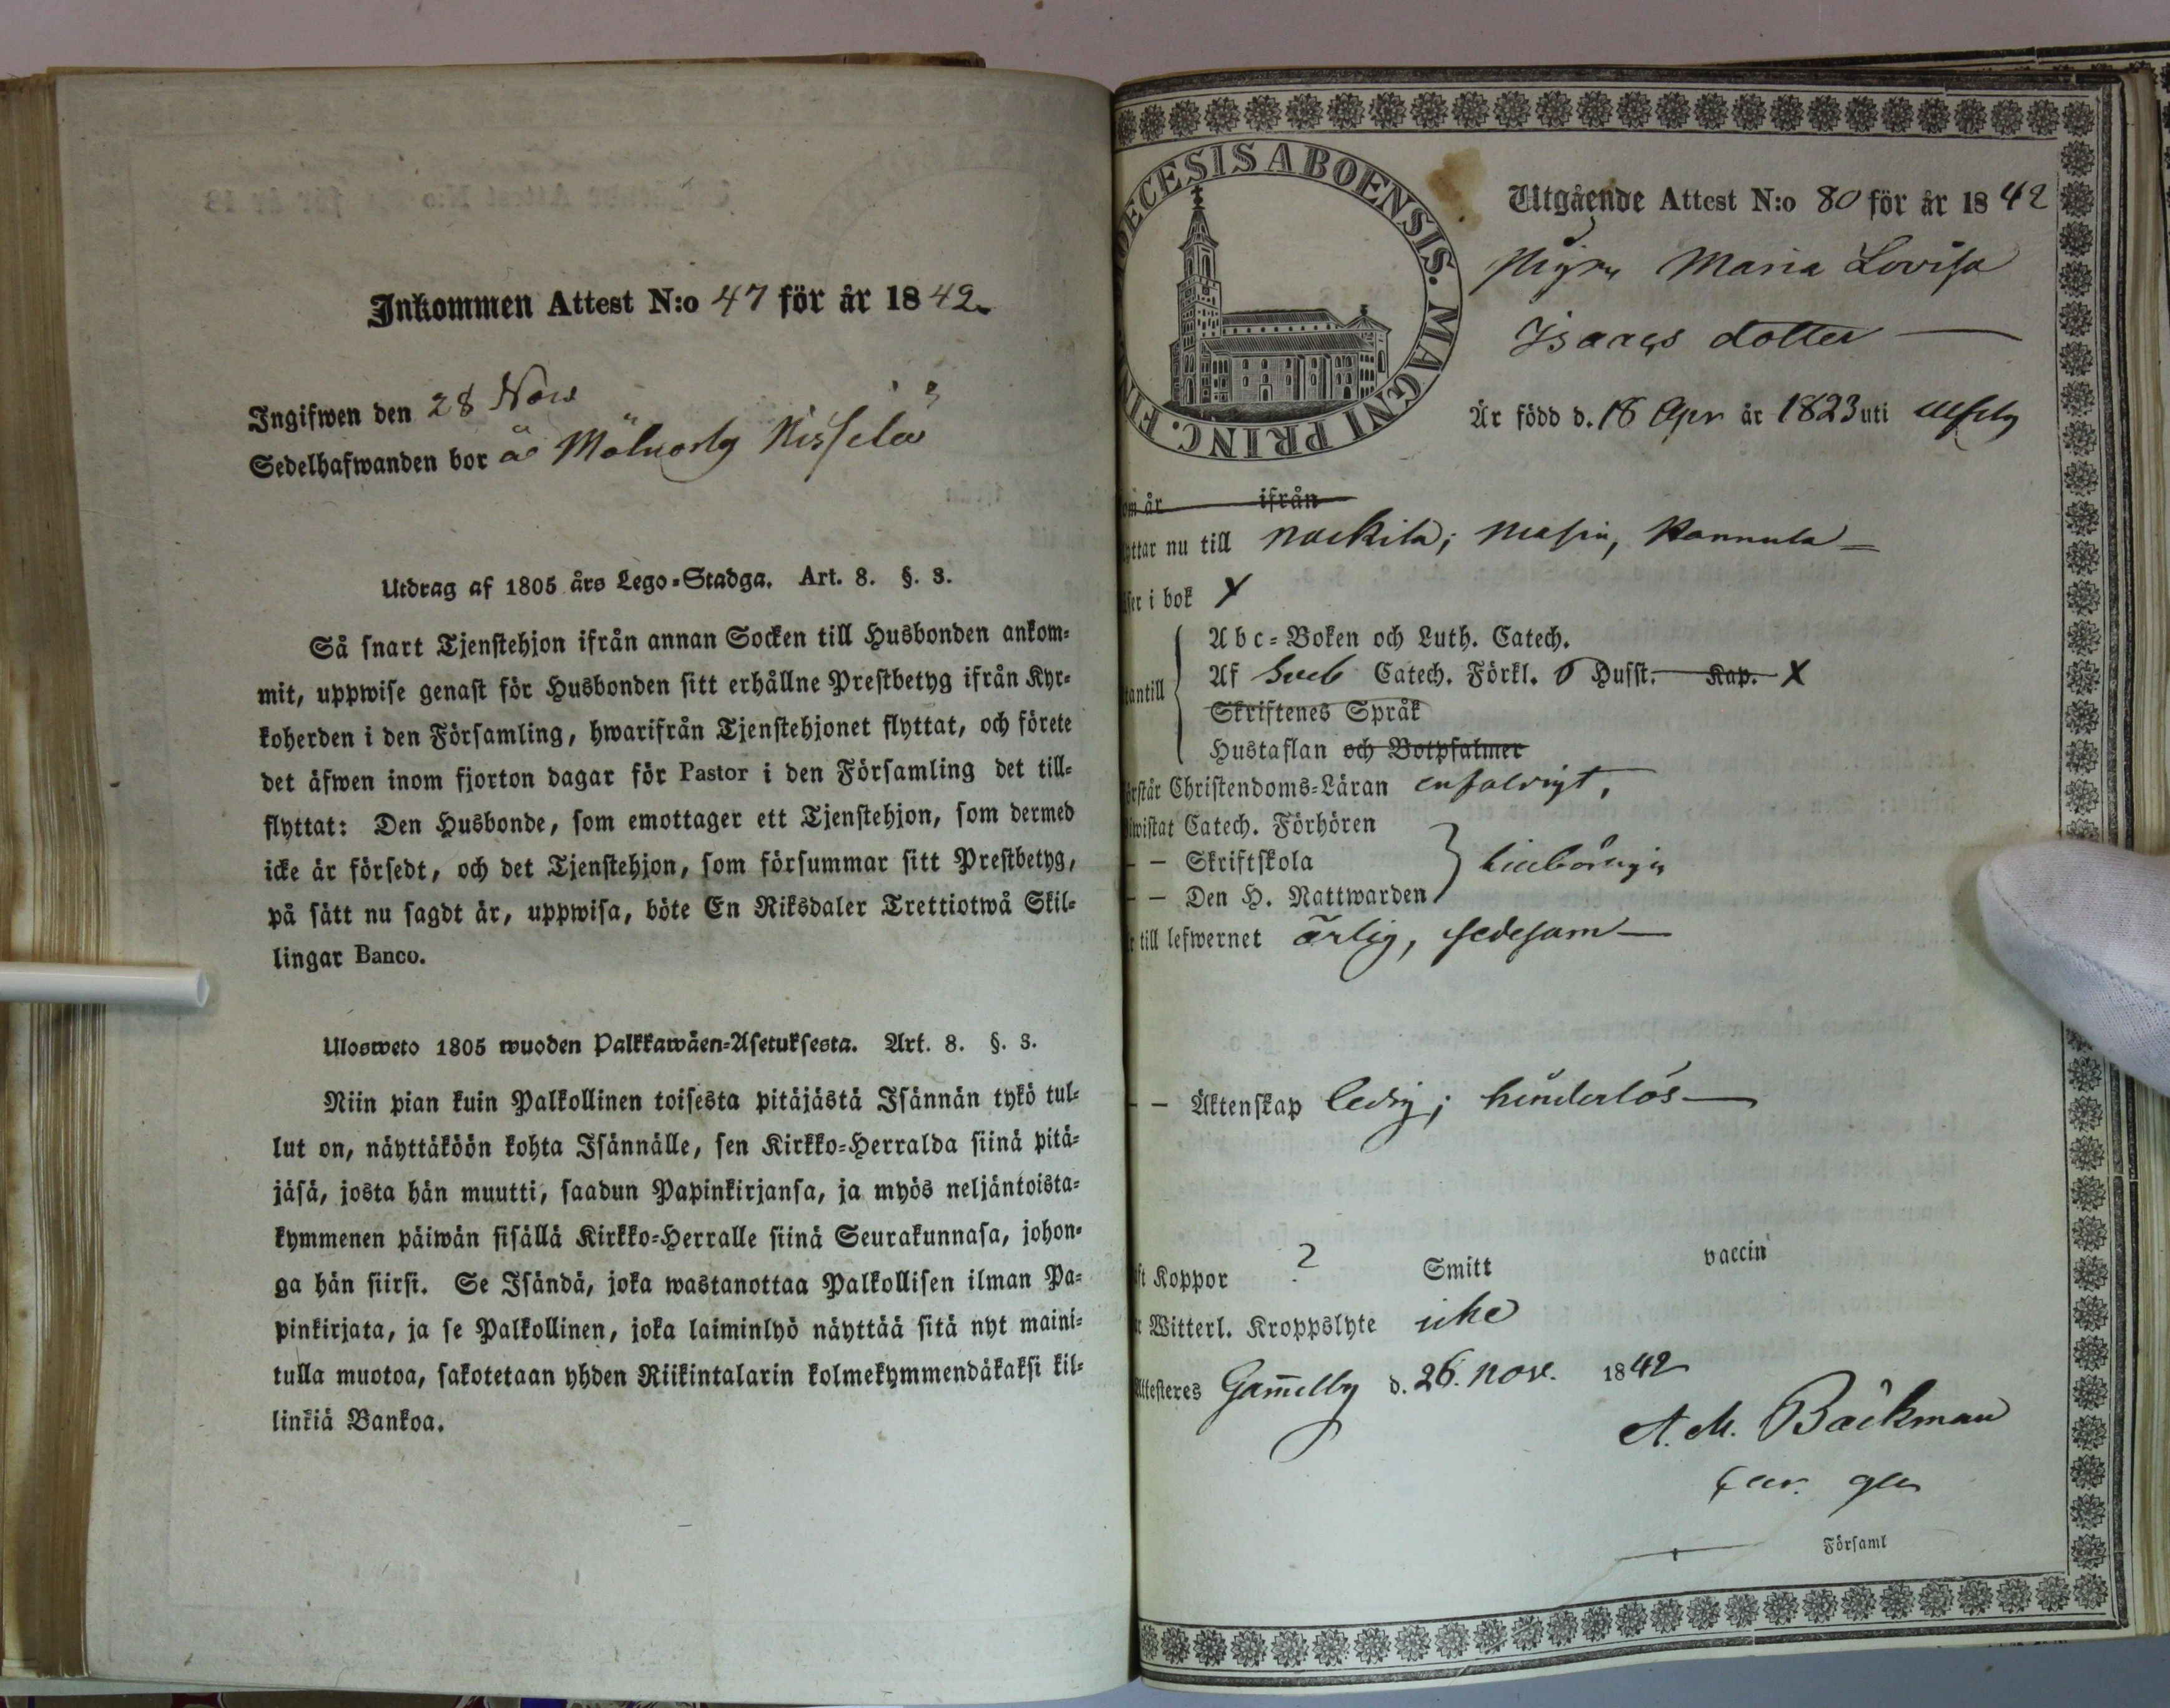 Inkommen Attest N:o 47 för år 1842.
Ingifwen den 28 Nov
Sedelhafwanden bor å
Utdrag af 1805 års Lego-Stadga. Art. 8. §. 3.
Så snart Tjenstehjon ifrån annan Socken till Husbonden ankom-
mit, uppwise genast för Husbonden sitt erhållne Prestbetyg ifrån Kyr-
koherden i den Församling, hwarifrån Tjenstehjonet flyttat, och förete
det äfwen inom fjorton dagar för Pastor i den Församling det till-
flyttat: Den Husbonde, som emottager ett Tjenstehjon, som dermed
icke är försedt, och det Tjenstehjon, som försummar sitt Prestbetyg,
på sätt nu sagdt är, uppwisa, böte En Riksdaler Trettiotwå Skil-
lingar Banco.
Ulosweto 1805 wuoden Palkkawäen-Asetuksesta. Art. 8. §. 3.
Niin pian kuin Palkollinen toisesta pitäjästä Isännän tykö tul-
lut on, näyttäköön kohta Isännälle, sen Kirkko-Herralda siinä pitä-
jäsä, josta hän muutti, saadun Papinkirjansa, ja myös neljäntoista-
kymmenen päiwän sisällä Kirkko-Herralle siinä Seurakunnasa, johon-
ga hän siirsi. Se Isändä, joka wastanottaa Palkollisen ilman Pa-
pinkirjata, ja se Palkollinen, joka laiminlyö näyttää sitä nyt maini-
tulla muotoa, sakotetaan yhden Riikintalarin kolmekymmendäkaksi kil-
linkiä Bankoa.
DECESIS ABOENSIS. MAGNI PRINC. FIN
Utgående Attest N:o 80 för år 1842
Pigan Maria Lovisa
Isaacs dotter
Är född d. 18 Apr år 1823 uti
om år ifrån
yttar nu till Nackila; Masia, Kannula
äser i bok X
tantill
Abc-Boken och Luth. Catech.
Af Sveb Catech. Förkl. Husst. Kap. X
Skriftenes Språk
Hustaflan och Botpsalmer
örstår Christendoms-Läran enfaldigt,
iwistat Catech. Förhören
– – Skriftskola
– – Den H. Nattwarden
r till lefwernet ärlig, sedesam
– – Äktenskap ledig; hinderlös
ft Koppor ? Smitt vaccin
r Witterl. Kroppslyte icke
Attesteres Gam̄elby d. 26. Nov. 1842
A. M. Bäckman
Församl